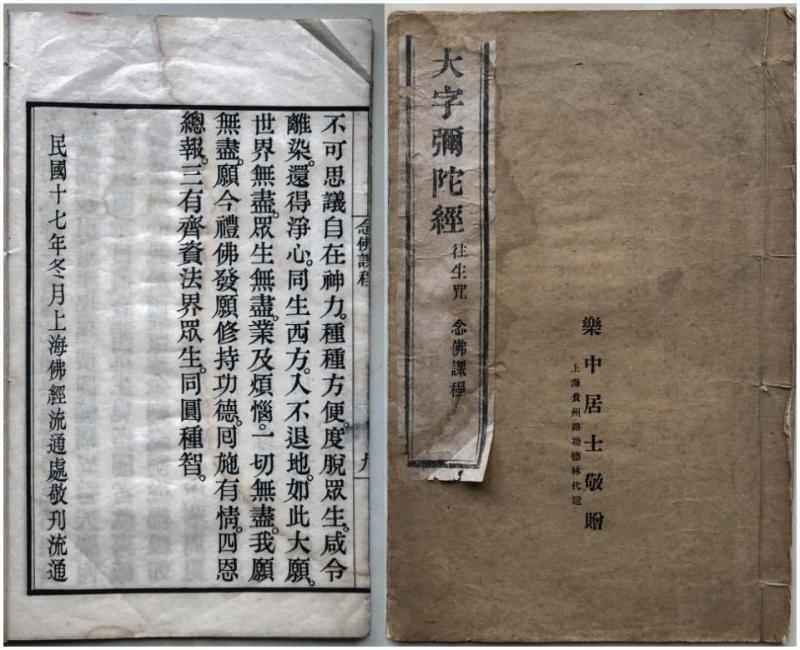 樂中居士敬贈
上海貴州路功德林代送
大字彌陀經 往生咒 念佛課程
念佛課程
九
不可思議自在神力。種種方便。度脫眾生。咸令
離染。還得淨心。同生西方。入不退地。如此大願。
世界無盡。眾生無盡。業及煩惱。一切無盡。我願
無盡。願今禮佛發願修持功德。囘施有情。四恩
總報。三有齊資法界眾生。同圓種智。
民國十七年冬月上海佛經流通處敬刊流通